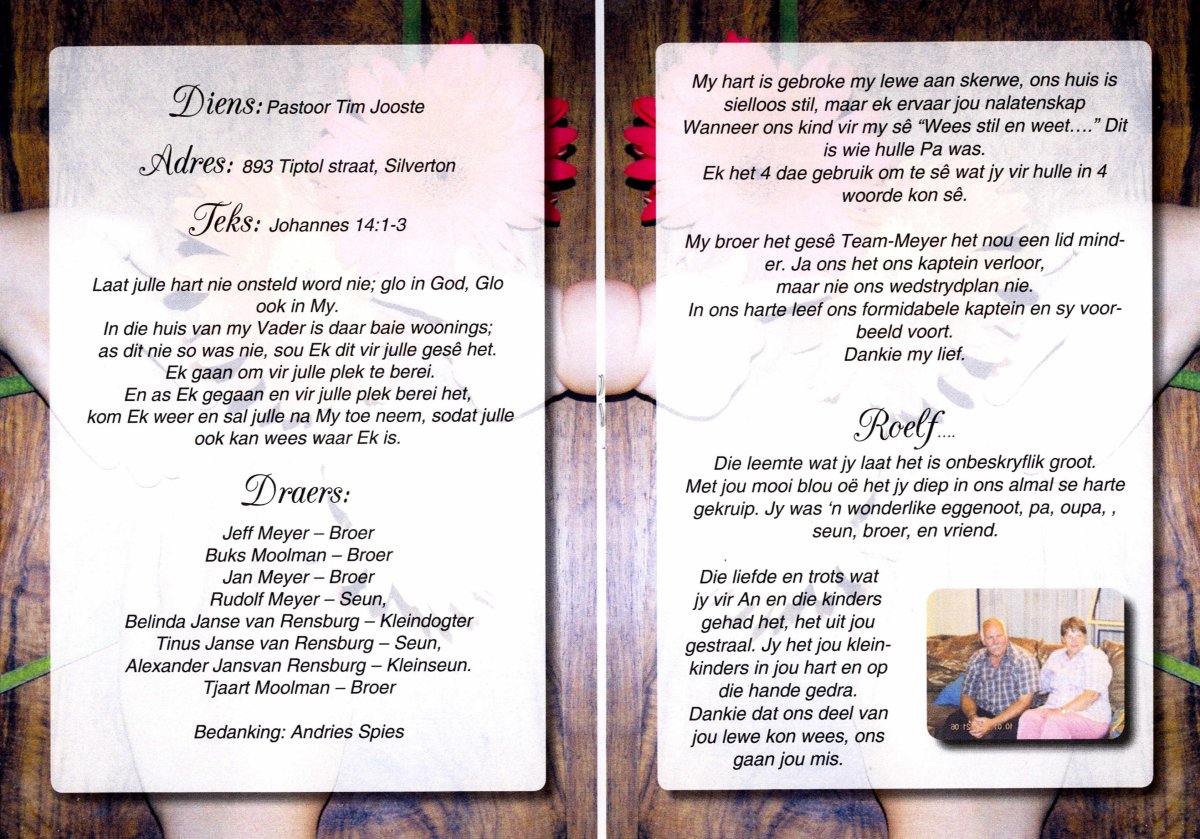 Diens: Pastoor Tim Jooste
Adres: 893 Tiptol straat, Silverton
Teks: Johannes 14:1-3
Laat julle hart nie onsteld word nie; glo in God, Glo
ook in My.
In die huis van my Vader is daar baie woonings;
as dit nie so was nie, sou Ek dit vir julle gesê het.
Ek gaan om vir julle plek te berei.
En as Ek gegaan en vir julle plek berei het,
kom Ek weer en sal julle na My toe neem, sodat julle
ook kan wees waar Ek is.
Draers:
Jeff Meyer – Broer
Buks Moolman – Broer
Jan Meyer – Broer
Rudolf Meyer – Seun,
Belinda Janse van Rensburg – Kleindogter
Tinus Janse van Rensburg – Seun,
Alexander Jansvan Rensburg – Kleinseun.
Tjaart Moolman – Broer
Bedanking: Andries Spies
My hart is gebroke my lewe aan skerwe, ons huis is
sielloos stil, maar ek ervaar jou nalatenskap
Wanneer ons kind vir my sê “Wees stil en weet….” Dit
is wie hulle Pa was.
Ek het 4 dae gebruik om te sê wat jy vir hulle in 4
woorde kon sê.
My broer het gesê Team-Meyer het nou een lid mind-
er. Ja ons het ons kaptein verloor,
maar nie ons wedstrydplan nie.
In ons harte leef ons formidabele kaptein en sy voor-
beeld voort.
Dankie my lief.
Roelf....
Die leemte wat jy laat het is onbeskryflik groot.
Met jou mooi blou oë het jy diep in ons almal se harte
gekruip. Jy was ‘n wonderlike eggenoot, pa, oupa, ,
seun, broer, en vriend.
Die liefde en trots wat
jy vir An en die kinders
gehad het, het uit jou
gestraal. Jy het jou klein-
kinders in jou hart en op
die hande gedra.
Dankie dat ons deel van
jou lewe kon wees, ons
gaan jou mis.